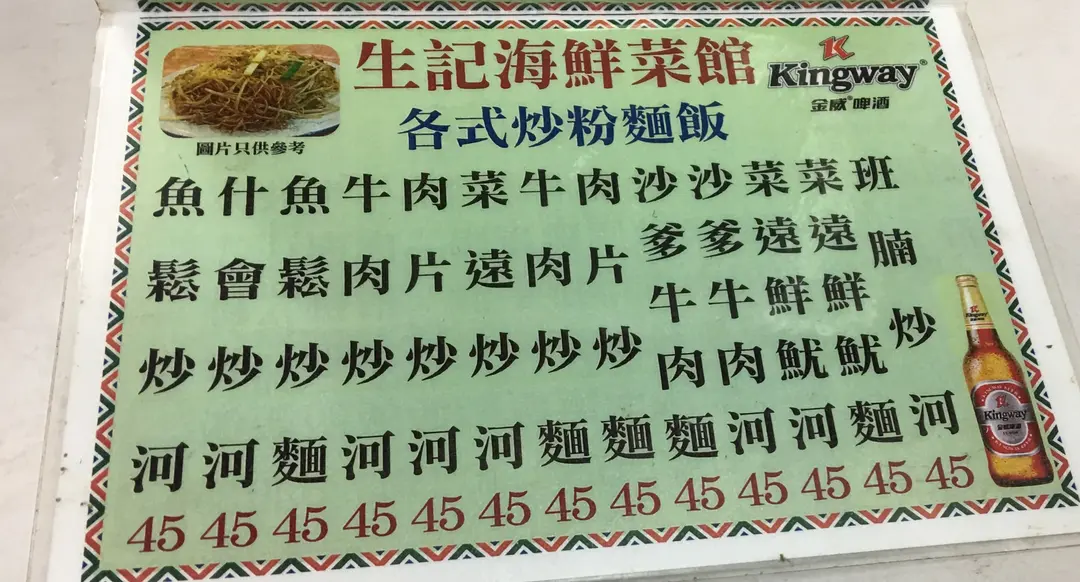 生記海鮮菜館
Kingway®
金威®啤酒
各式炒粉麵飯
圖片只供參考
班腩炒河 45
菜遠鮮魷麵 45
菜遠鮮魷河 45
沙爹牛肉河 45
沙爹牛肉麵 45
肉片炒麵 45
牛肉炒麵 45
菜遠炒河 45
肉片炒河 45
牛肉炒河 45
魚鬆炒麵 45
什會炒河 45
魚鬆炒河 45
Kingway